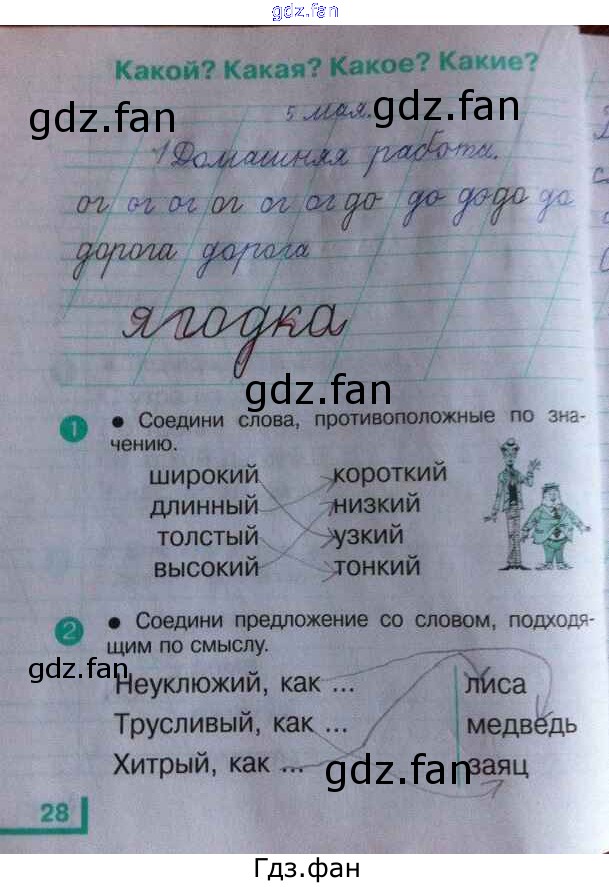 gdz.fan
Какой? Какая? Какое? Какие?
gdz.fan gdz.fan
5 мая.
Домашняя работа.
ог ог ог ог ог ог до до до до до
дорога дорога
ягодка
gdz.fan
1 • Соедини слова, противоположные по зна-
чению.
широкий короткий
длинный низкий
толстый узкий
высокий тонкий
2 • Соедини предложение со словом, подходя-
щим по смыслу.
gdz.fan
Неуклюжий, как ... лиса
Трусливый, как ... медведь
Хитрый, как ... заяц
gdz.fan
28
Гдз.фан